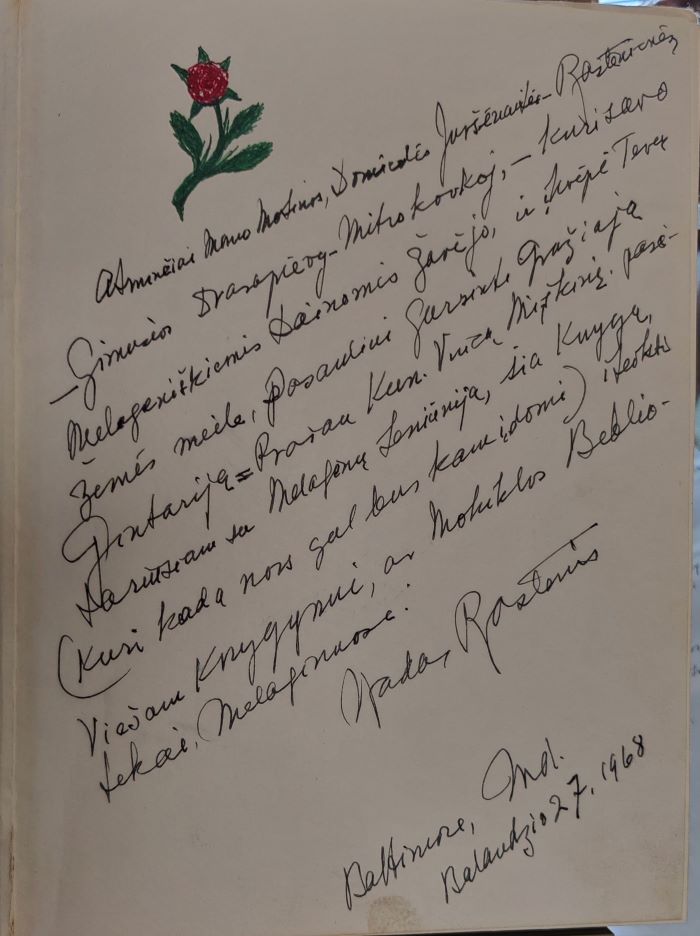 Atminčiai Mano Motinos, Domicelės Juršėnaitės - Rastenienės
- Gimusios Drasapievų - Mitrokovkoj, - kuri savo
Melageniškiemis Dainomis žavėjo, ir kvėpė Tevų
žemės meile, pasauliui garsinti Gražiąją
Gintariją = Prašau Kun. Vincą Miškinį. pasi-
Darusiam su Melagėnų Seniūnija, šia Knygą,
(kuri kada nors gal bus kam įdomi) įteikti
Viešam Knygynui, ar Mokyklos Beblio-
tekai, Melagėnuose.
Nadas Rastenis
Baltimore, Md.
Balandžio 27, 1968